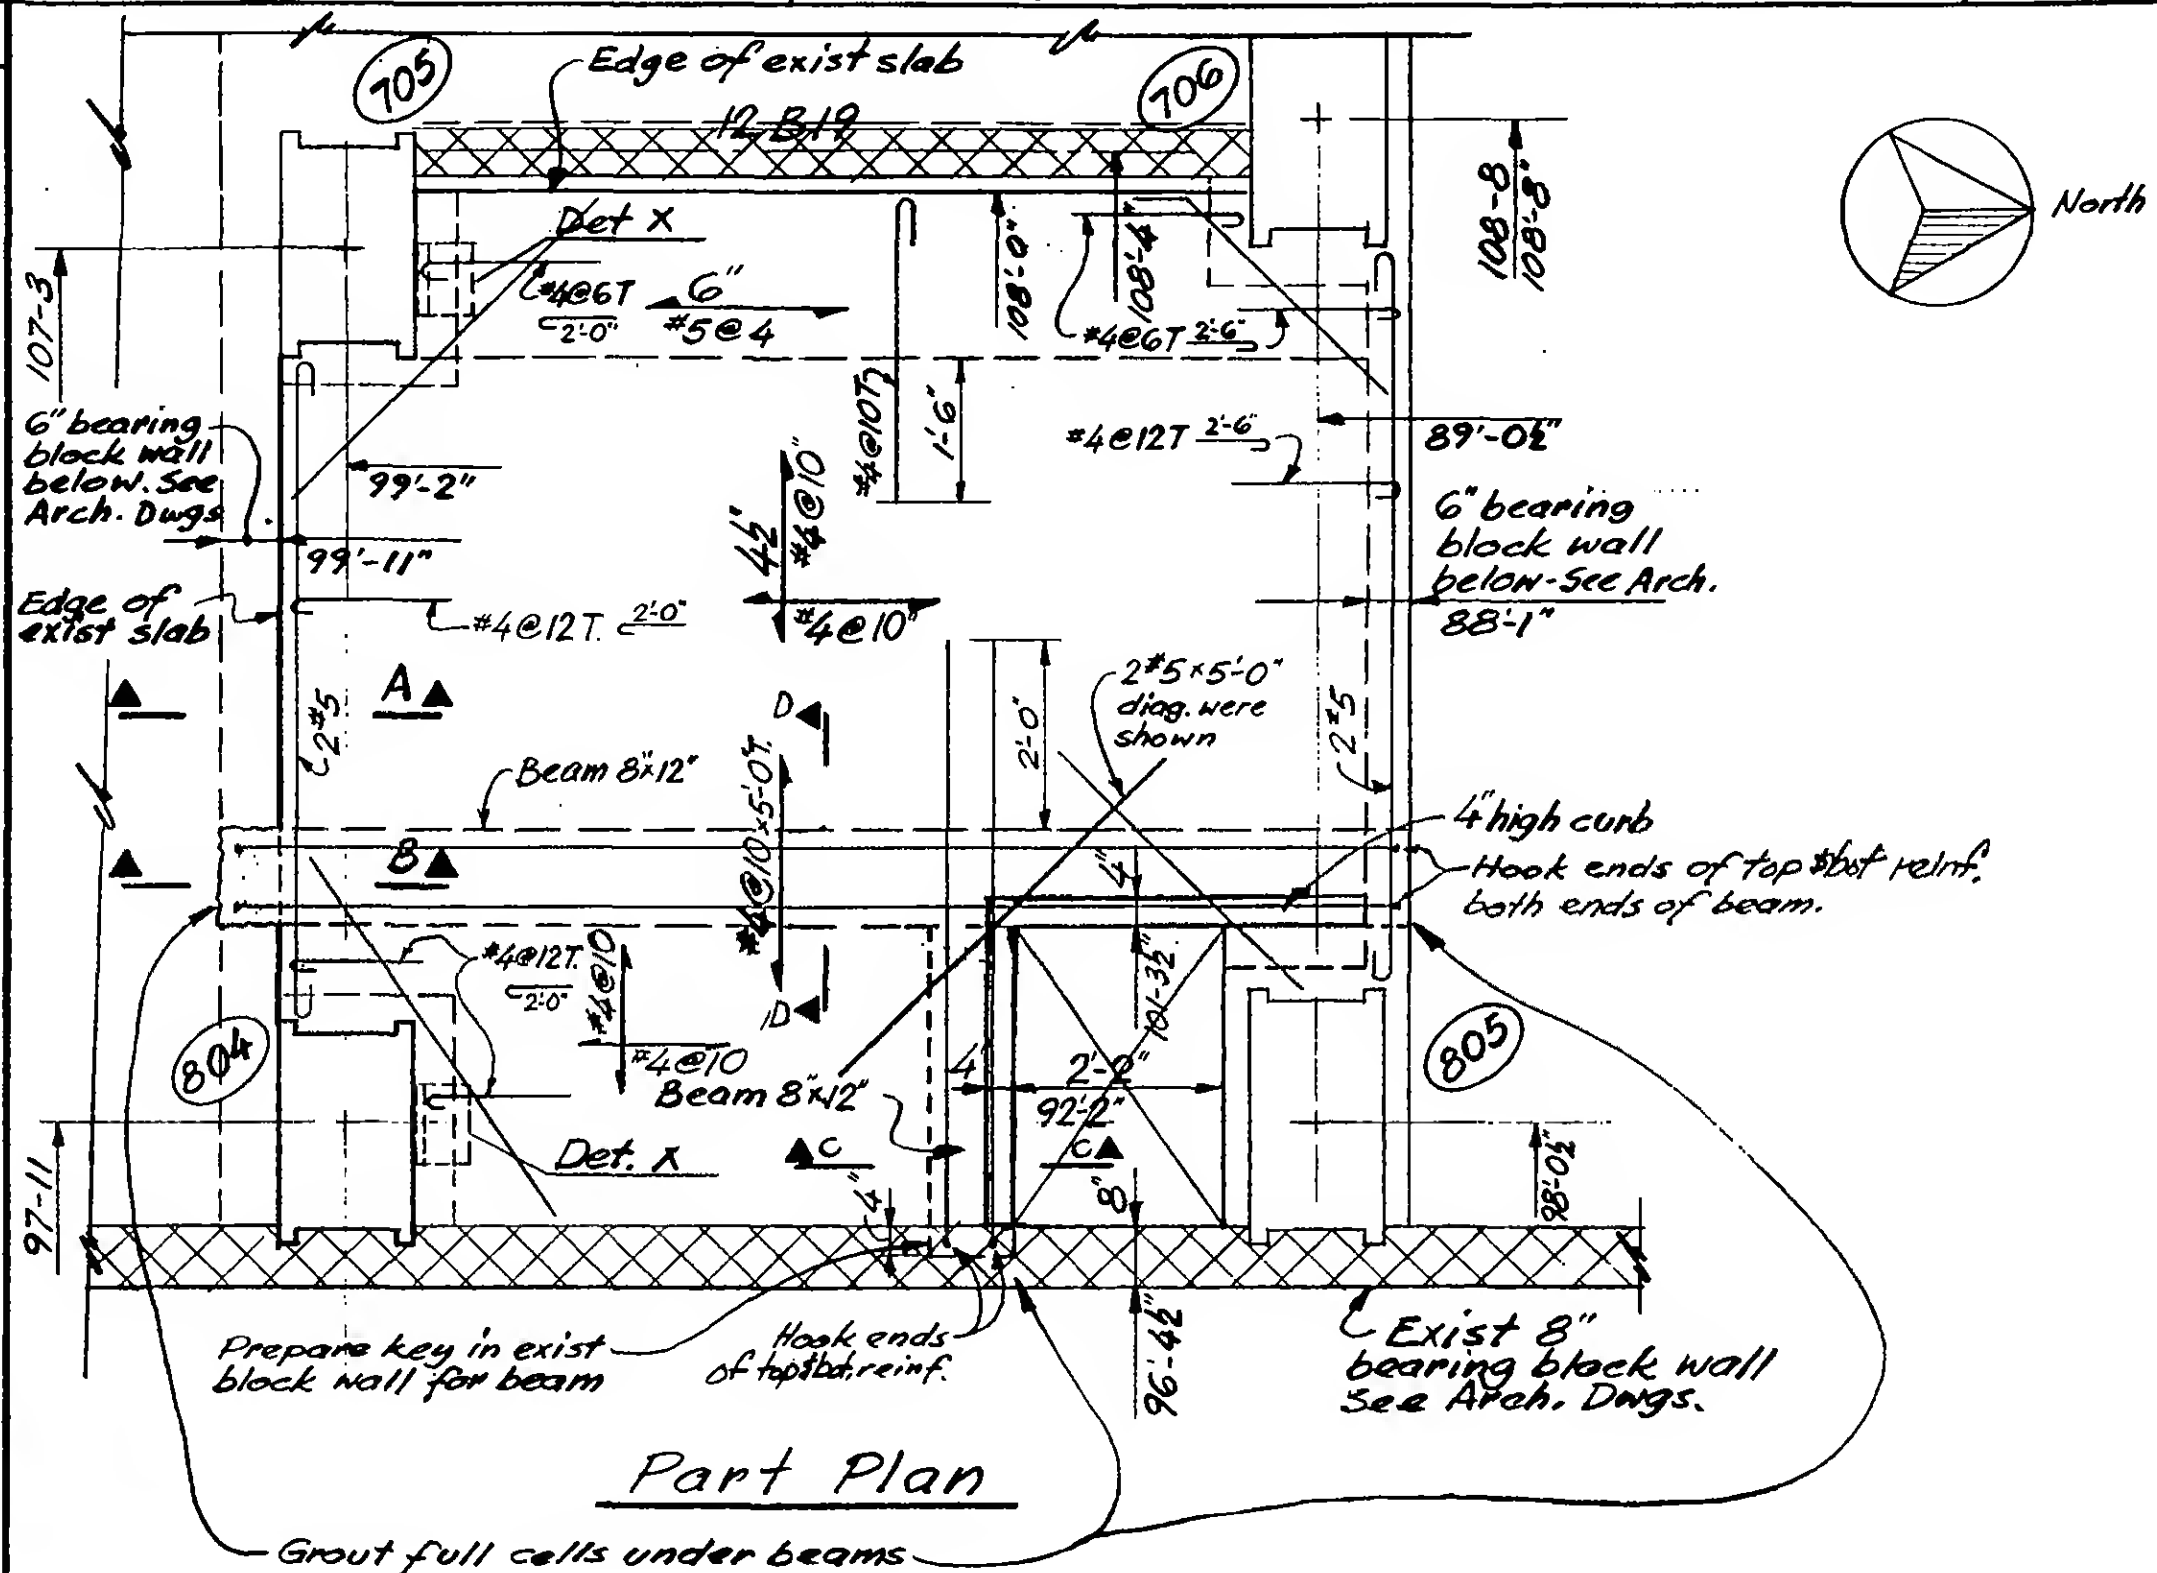 705
Edge of exist slab
706
12 B 19
North
108-8
108'-8"
Det X
107-3
#4@6T
2'-0"
6"
#5@4
108'-0"
108'-4"
#4@6T 2'-6"
#4@10T
1'-6"
#4@12T 2'-6"
89'-0½"
6" bearing
block wall
below. See
Arch. Dwgs
99'-2"
99'-11"
4½"
#4@10"
#4@10"
6" bearing
block wall
below-See Arch.
88'-1"
Edge of
exist slab
#4@12T. 2'-0"
A
2#5
D
2'-0"
2#5×5'-0"
diag. were
shown
2#5
Beam 8"x12"
#4@10×5'-0T.
4" high curb
B
4"
Hook ends of top $bot reinf.
both ends of beam.
#4@12T.
2'-0"
#4@10
#4@10
D
101-3½"
804
805
Beam 8"x12"
4"
2'-2"
92'-2"
97-11
Det. X
C
C
4"
8"
98'-0½"
Prepare key in exist
block wall for beam
Hook ends
of top$bot.reinf.
96'-4½"
Exist 8"
bearing block wall
See Arch. Dwgs.
Part Plan
Grout full cells under beams